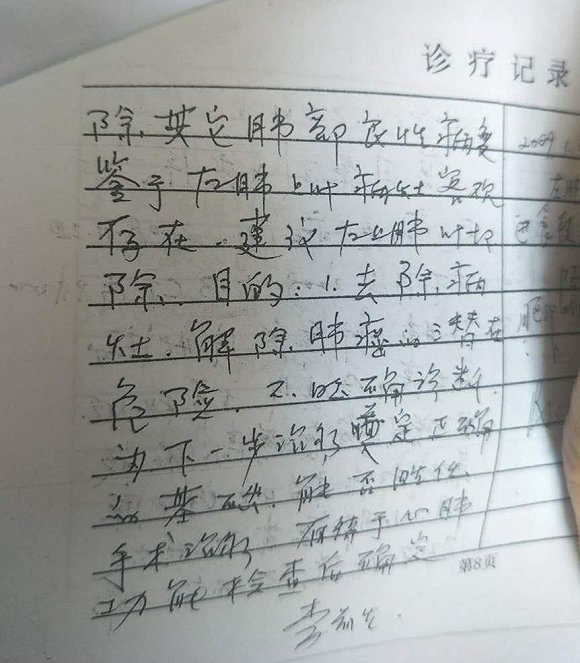 诊疗记录
除其它肺部良性病变
鉴于左肺上叶病灶客观
存在，建议左上肺叶切
除。目的：1.去除病
灶，解除肺癌的潜在
危险。2.明确诊断，
为下一步治疗奠定正确
的基础。能否胜任
手术治疗，有待于心肺
功能检查后确定
第8页